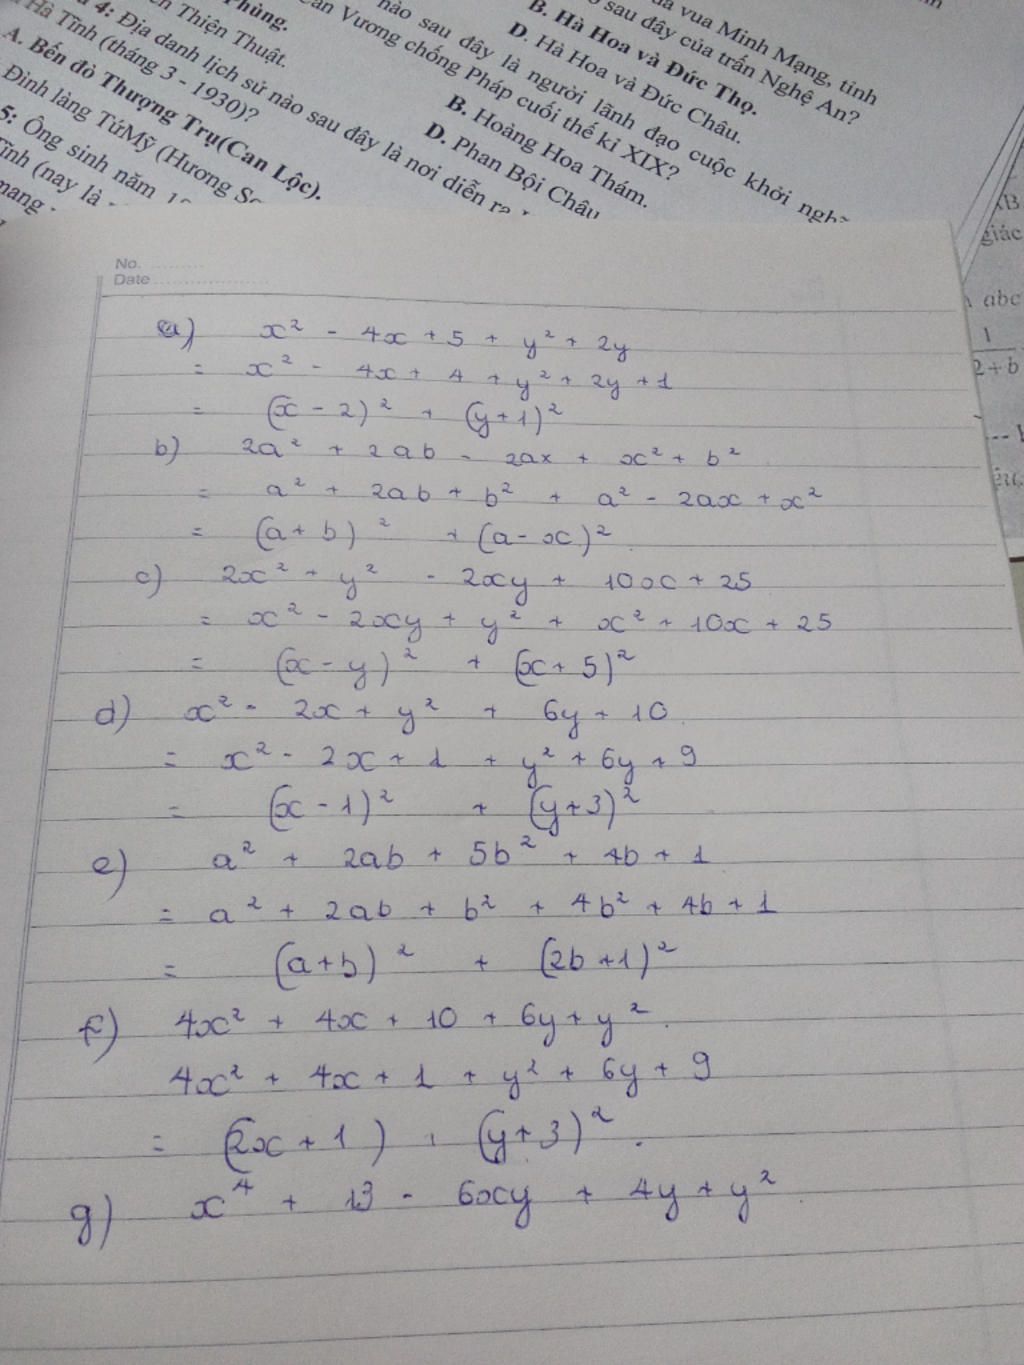 đa vua Minh Mạng, tỉnh
sau đây của trấn Nghệ An?
B. Hà Hoa và Đức Thọ.
D. Hà Hoa và Đức Châu.
nào sau đây là người lãnh đạo cuộc khởi
Cần Vương chống Pháp cuối thế kỉ XIX?
B. Hoàng Hoa Thám.
D. Phan Bội Châu
Phùng.
Thiện Thuật.
4: Địa danh lịch sử nào sau đây là nơi diễn ra
Hà Tĩnh (tháng 3 - 1930)?
A. Bến đò Thượng Trụ(Can Lộc).
Đình làng TứMỹ (Hương
5: Ông sinh năm
Tĩnh (nay là
mang
giác
abc
1
2+b
No. ..........
Date ......................
a) x² - 4x + 5 + y² + 2y
= x² - 4x + 4 + y² + 2y + 1
= (x - 2)² + (y+1)²
b) 2a² + 2ab - 2ax + x² + b²
= a² + 2ab + b² + a² - 2ax + x²
= (a + b)² + (a - x)²
c) 2x² + y² - 2xy + 10x + 25
= x² - 2xy + y² + x² + 10x + 25
= (x - y)² + (x + 5)²
d) x² - 2x + y² + 6y + 10
= x² - 2x + 1 + y² + 6y + 9
= (x - 1)² + (y+3)²
e) a² + 2ab + 5b² + 4b + 1
= a² + 2ab + b² + 4b² + 4b + 1
= (a+b)² + (2b+1)²
f) 4x² + 4x + 10 + 6y + y².
4x² + 4x + 1 + y² + 6y + 9
= (2x + 1) + (y+3)².
g) x⁴ + 13 - 6xy + 4y + y²